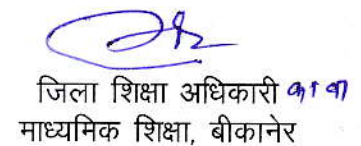 जिला शिक्षा अधिकारी
माध्यमिक शिक्षा, बीकानेर